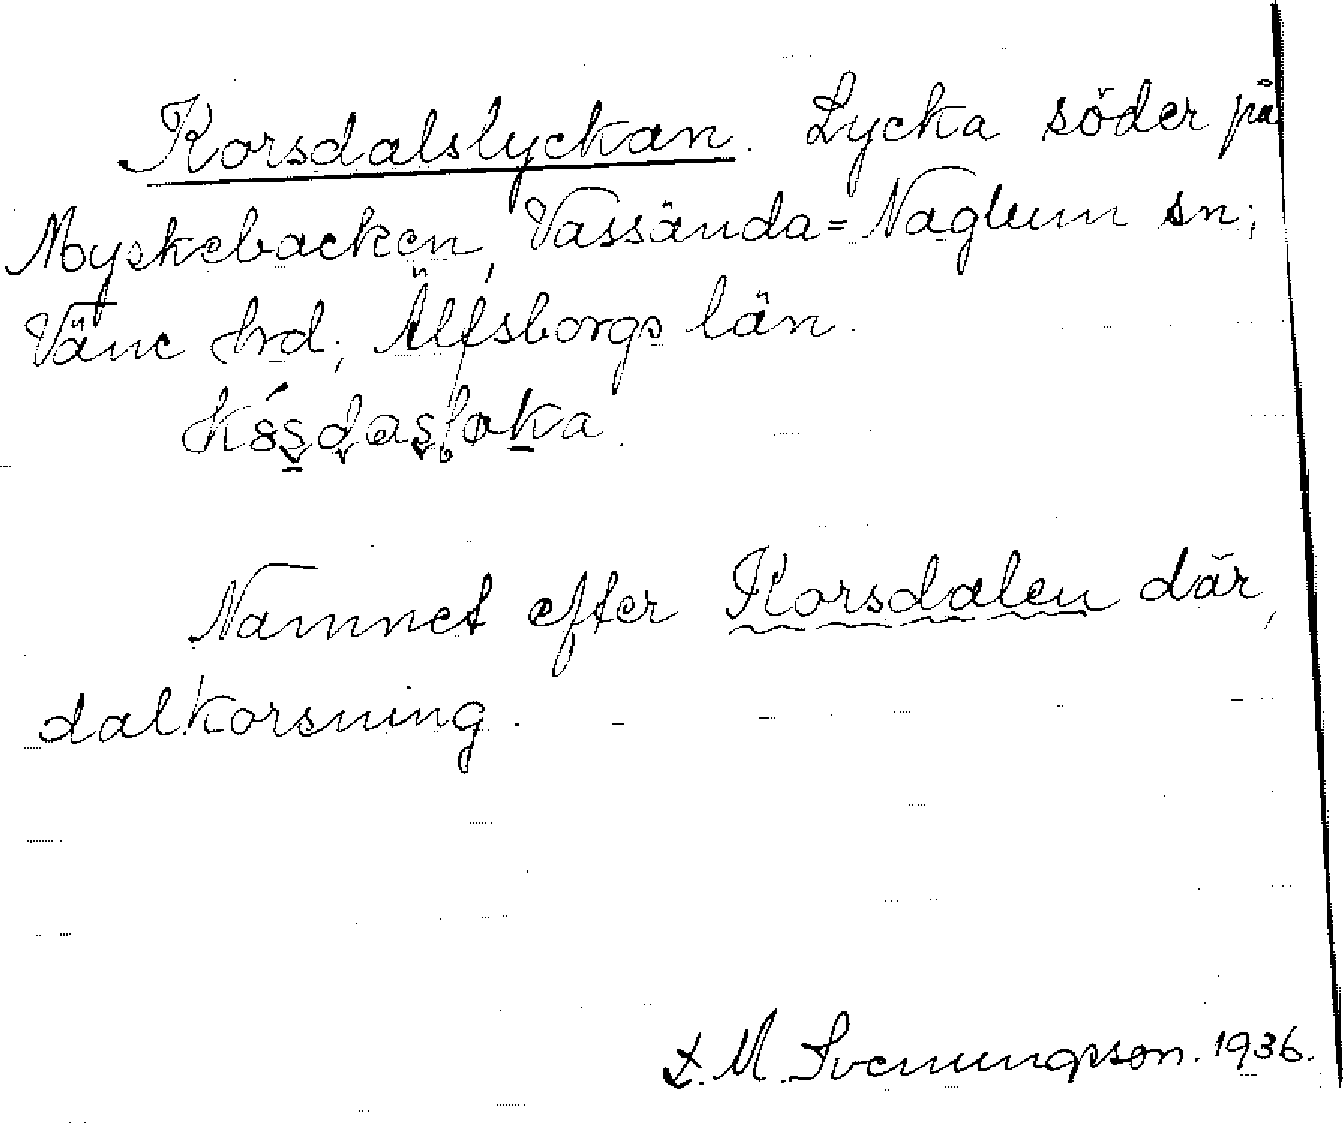 Korsdalslyckan. Lycka söder på
Myskebacken, Vassända=Naglum sn;
Väne hrd; Älfsborgs län.
Namnet efter Korsdalen där,
dalkorsning.
M. Svenungsson. 1936.